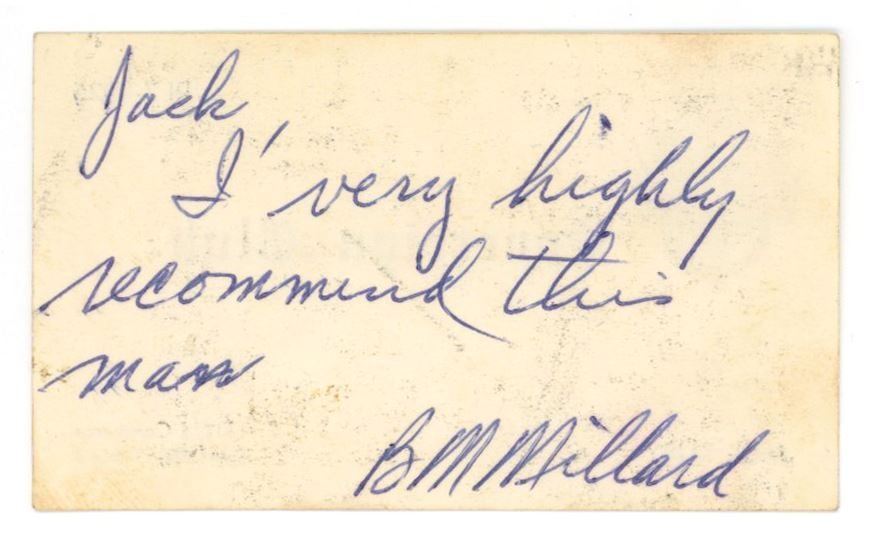 Jack,
I very highly
recommend this
man
B M Millard